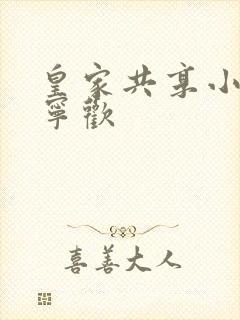 皇家共享小
寧歡
喜善大人